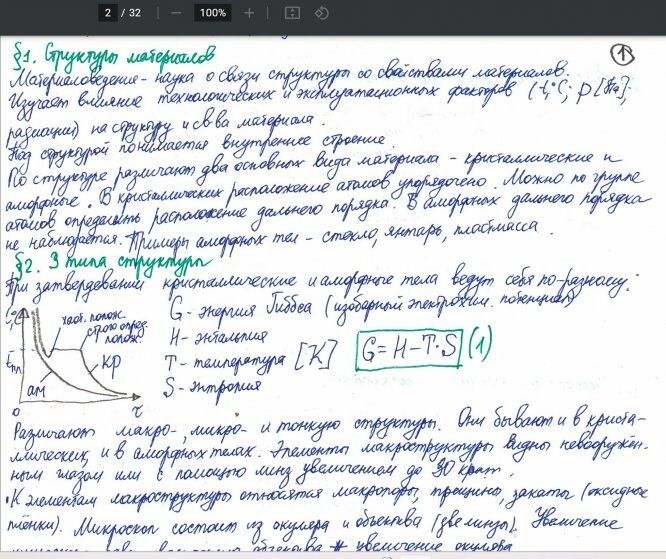 2 / 32
100%
①
§1. Структуры материалов
Материаловедение - наука о связи структуры со свойствами материалов.
Изучает влияние технологических и эксплуатационных факторов (t,°C; p[Па];
радиации) на структуру и св-ва материала.
Под структурой понимается внутреннее строение.
По структуре различают два основных вида материала - кристаллические и
аморфные. В кристаллических расположение атомов упорядочено. Можно по группе
атомов определить расположение дальнего порядка. В аморфных дальнего порядка
не наблюдается. Примеры аморфных тел - стекло, янтарь, пластмасса.
§2. 3 типа структуры
При затвердевании кристаллические и аморфные тела ведут себя по-разному:
G - энергия Гиббса (изобарный электрохим. потенциал)
H - энтальпия
T - температура [K]
S - энтропия
G = H - T·S (1)
°C
хаот. полож.
строго опред.
полож.
кр
ам
0
τ
Различают макро-, микро- и тонкую структуры. Они бывают и в криста-
лических, и в аморфных телах. Элементы макроструктуры видны невооружён-
ным глазом или с помощью линз увеличением до 30 крат.
К элементам макроструктуры относятся макропоры, трещины, закаты (оксидные
плёнки). Микроскоп состоит из окуляра и объектива (две линзы). Увеличение
объектива * увеличение окуляра